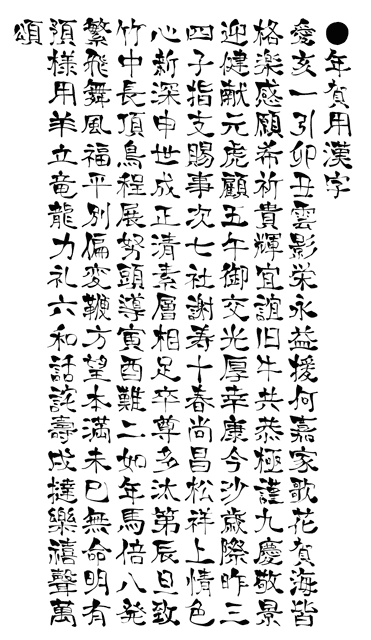 ●年賀用漢字
愛亥一引卯丑雲影栄永益援何嘉家歌花賀海皆
格楽感願希祈貴輝宜誼旧牛共恭極謹九慶敬景
迎健献元虎顧五午御交光厚幸康今沙歳際昨三
四子指支賜事次七社謝寿十春尚昌松祥上情色
心新深申世成正清素層相足卒尊多汰第辰旦致
竹中長頂鳥程展努頭導寅酉難二如年馬倍八発
繁飛舞風福平別偏変鞭方望本満未巳無命明有
預様用羊立竜龍力礼六和話詫壽戌撻樂禧聲萬
頌